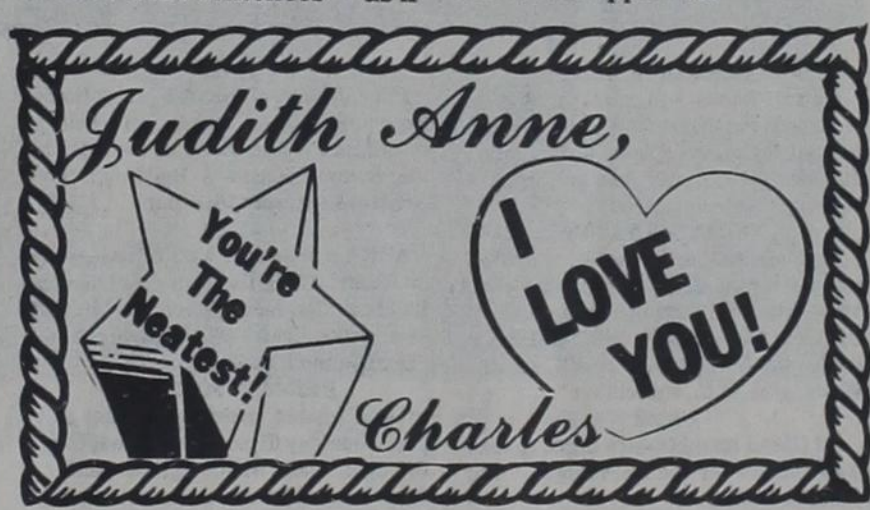 Judith Anne,
You're
The
Neatest!
I
LOVE
YOU!
Charles